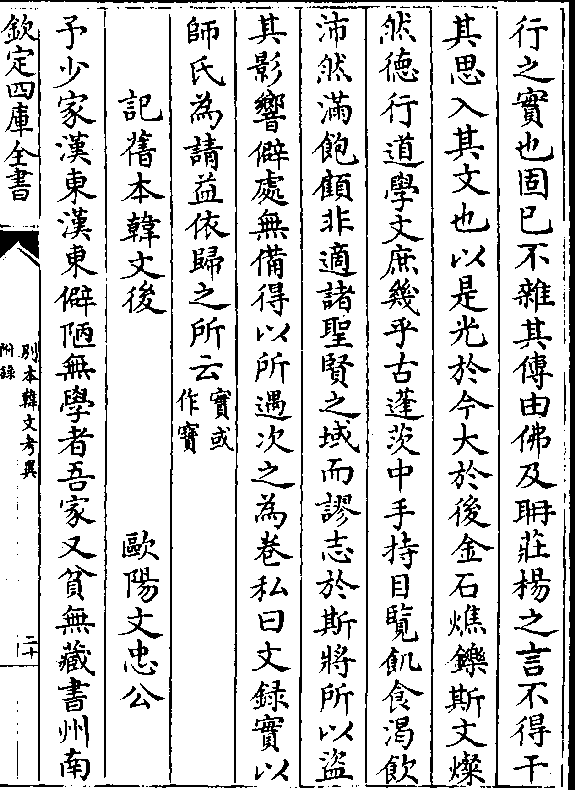 行之實也固已不雜其傳由佛及聃莊楊之言不得干
其思入其文也以是光於今大於後金石燋鑠斯文燦
然德行道學文庶幾乎古蓬茨中手持目覽飢食渴飲
沛然滿飽顧非適諸聖賢之域而謬志於斯將所以盜
其影響僻處無備得以所遇次之為卷私曰文録實以
師氏為請益依歸之所云實或作寶
記舊本韓文後 歐陽文忠公
予少家漢東漢東僻陋無學者吾家又貧無藏書州南
欽定四庫全書
別本韓文考異
附錄
二十